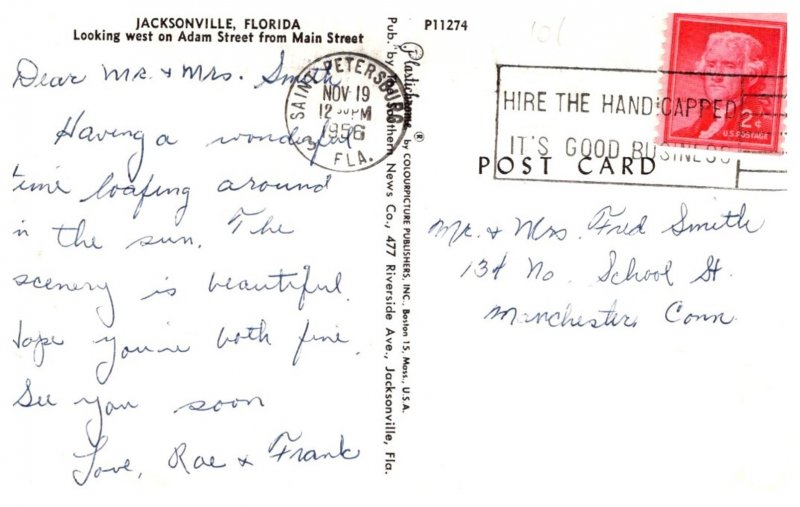 JACKSONVILLE, FLORIDA
Looking west on Adam Street from Main Street
Dear Mr. & Mrs. Smith,
Having a wonderful
time loafing around
in the sun. The
scenery is beautiful.
Hope you're both fine.
See you soon
Love, Rae & Frank
SAINT PETERSBURG
NOV 19
12 PM
1956
FLA.
3
Pub. by Southern News Co., 477 Riverside Ave., Jacksonville, Fla.
Plastichrome ® by COLOURPICTURE PUBLISHERS, INC., Boston 15, Mass., U.S.A.
P11274
HIRE THE HANDICAPPED
IT'S GOOD BUSINESS
2¢
U.S. POSTAGE
POST CARD
Mr. & Mrs. Fred Smith
134 No. School St.
Manchester, Conn.